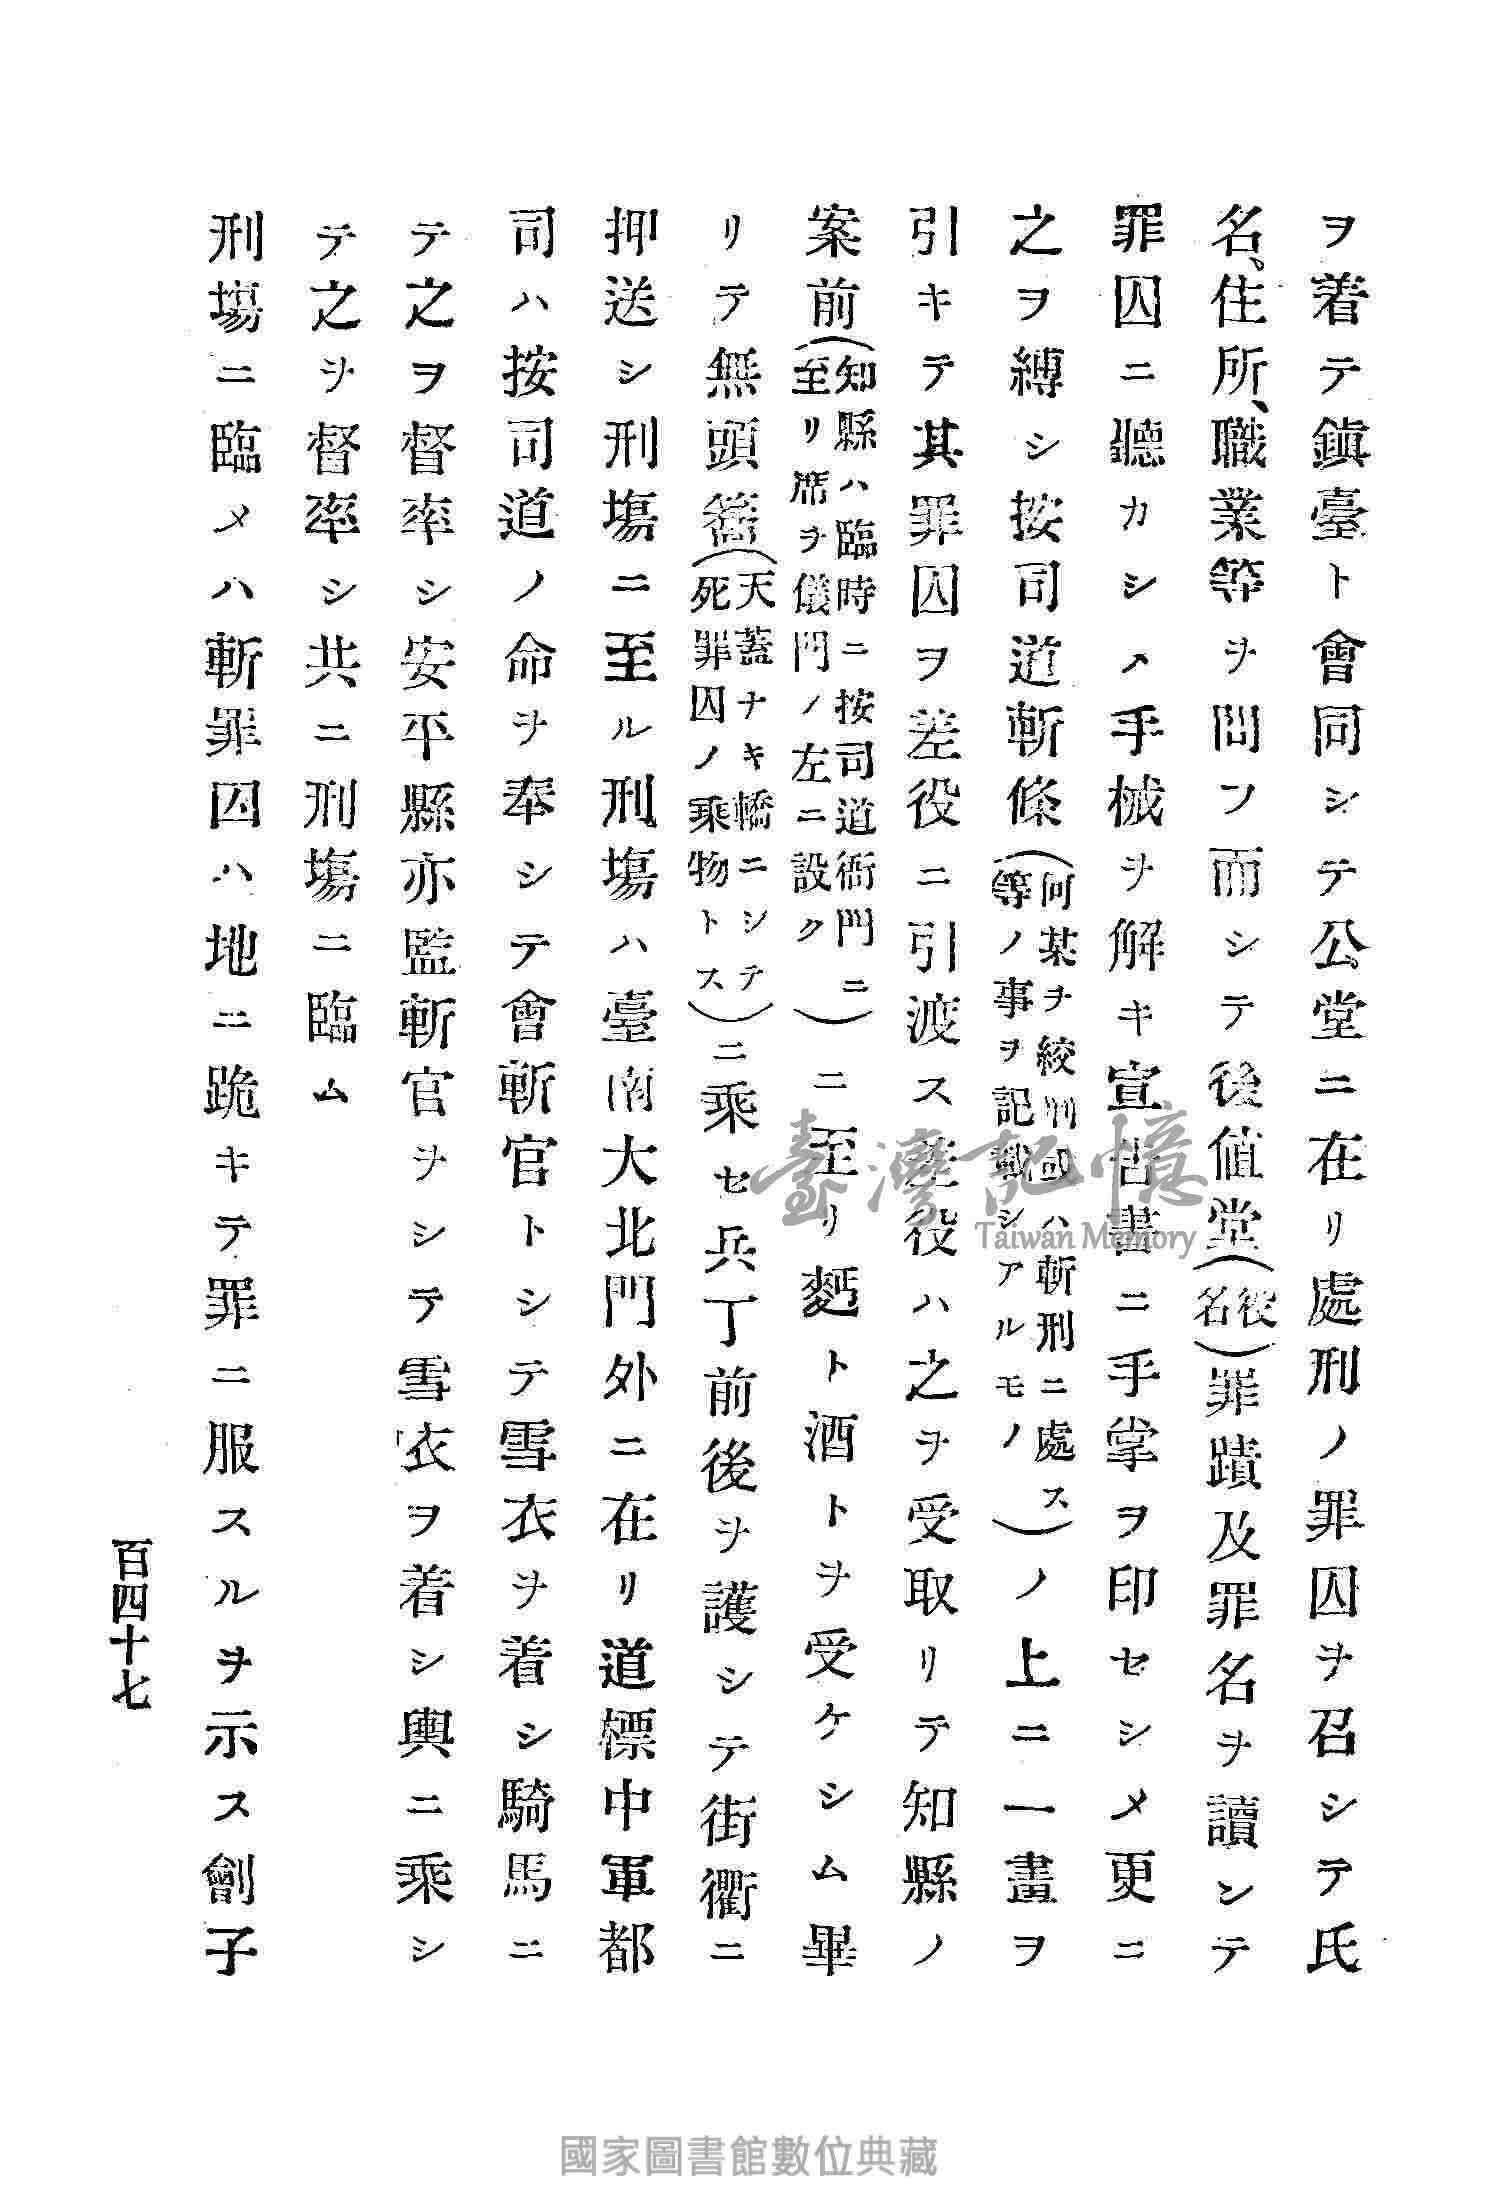 ヲ着テ鎭臺ト會同シテ公堂ニ在リ處刑ノ罪囚ヲ召シテ氏
名、住所、職業等ヲ問フ而シテ後値堂(役名)罪蹟及罪名ヲ讀ンテ
罪囚ニ聽カシメ手械ヲ解キ宣告書ニ手掌ヲ印セシメ更ニ
之ヲ縛シ按司道斬條(何某ヲ絞刑或ハ斬刑ニ處ス等ノ事ヲ記載シアルモノ)ノ上ニ一畫ヲ
引キテ其罪囚ヲ差役ニ引渡ス差役ハ之ヲ受取リテ知縣ノ
案前(知縣ハ臨時ニ按司道衙門ニ至リ席ヲ儀門ノ左ニ設ク)ニ至リ麪ト酒トヲ受ケシム畢
リテ無頭(天蓋ナキ轎ニシテ死罪囚ノ乘物トス)ニ乘セ兵丁前後ヲ護シテ街衢ニ
押送シ刑塲ニ至ル刑塲ハ臺南大北門外ニ在リ道標中軍都
司ハ按司道ノ命ヲ奉シテ會斬官トシテ雪衣ヲ着シ騎馬ニ
テ之ヲ督率シ安平縣亦監斬官ヲシテ雪衣ヲ着シ輿ニ乘シ
テ之ヲ督率シ共ニ刑塲ニ臨ム
刑塲ニ臨メハ斬罪囚ハ地ニ跪キテ罪ニ服スルヲ示ス劊子
百四十七
臺灣記憶
Taiwan Memory
國家圖書館數位典藏